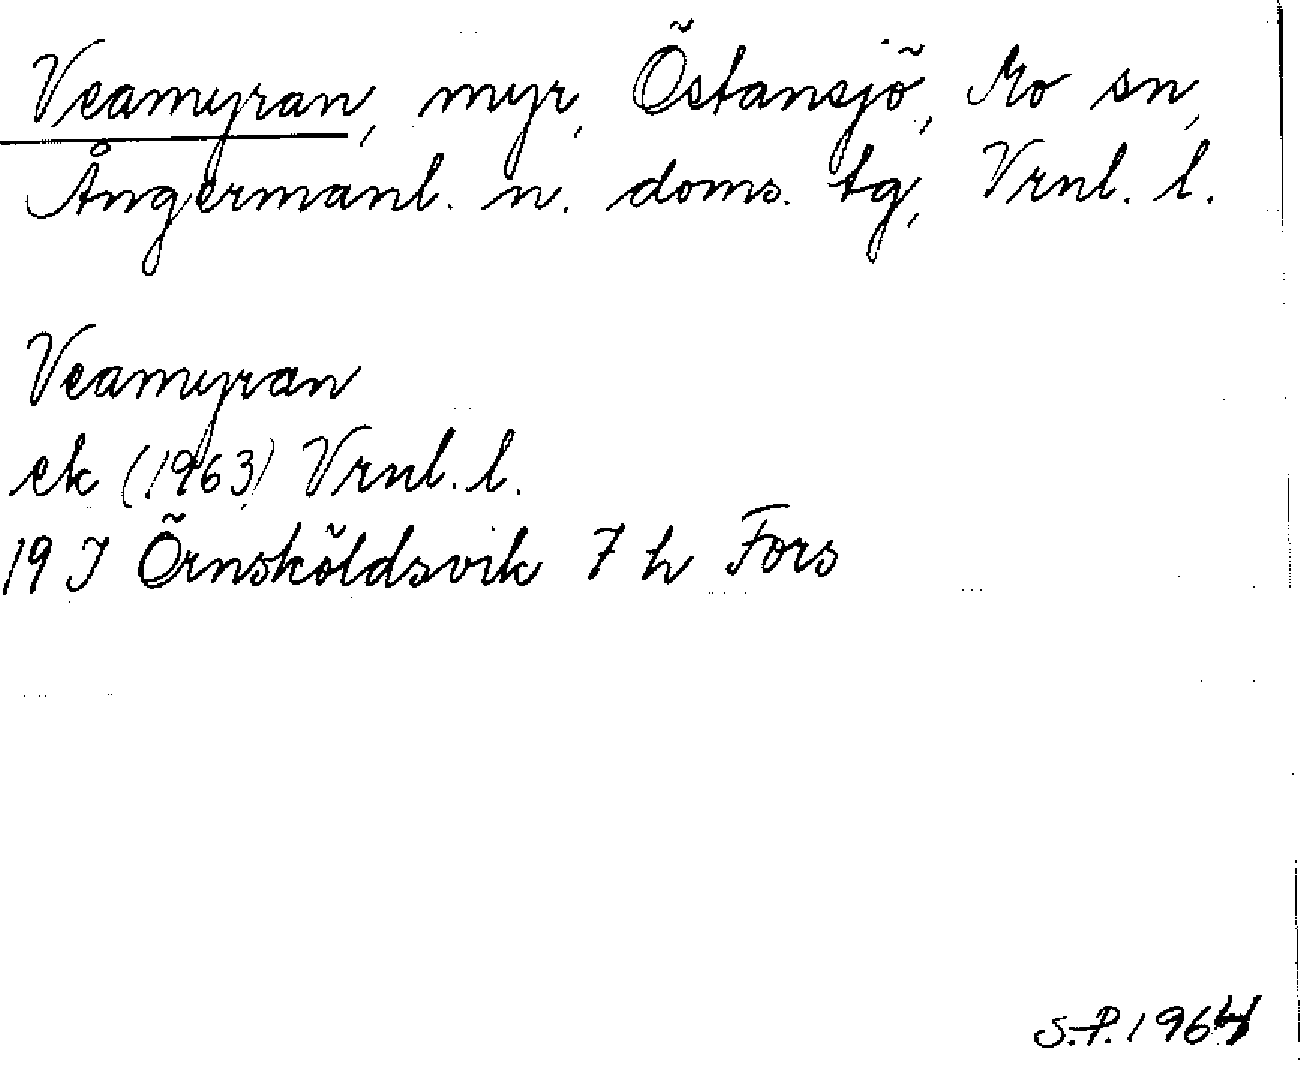 Veamyran, myr, Östansjö, Mo sn,
Ångermanl. n. doms. tg, Vrnl. l.
Veamyran
ek (1963) Vrnl. l.
19 J Örnsköldsvik 7 h Fors
S.P. 1964